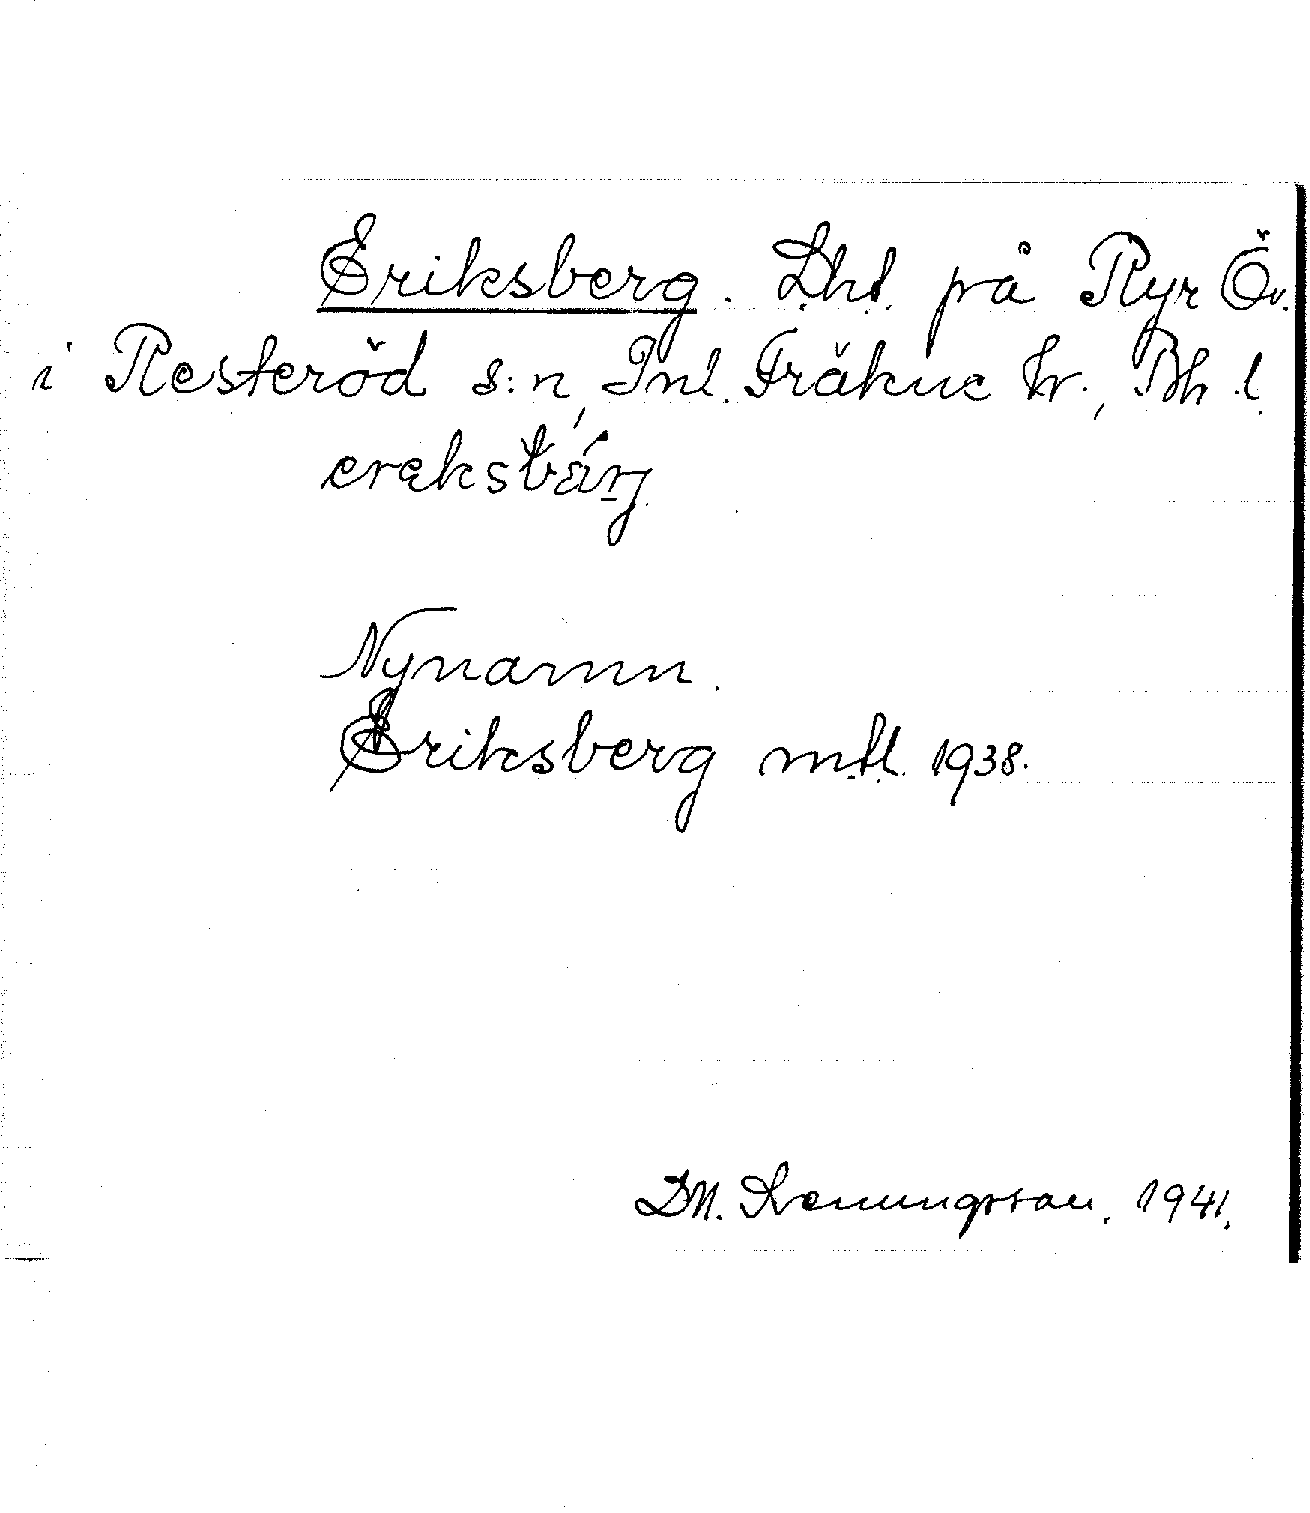 Eriksberg. Lht. på Ryr Öv.
i Resteröd s:n, Inl. Fräkne hr., Bh. l.
ereksbärj
Nynamn.
Eriksberg mtl. 1938.
1941.